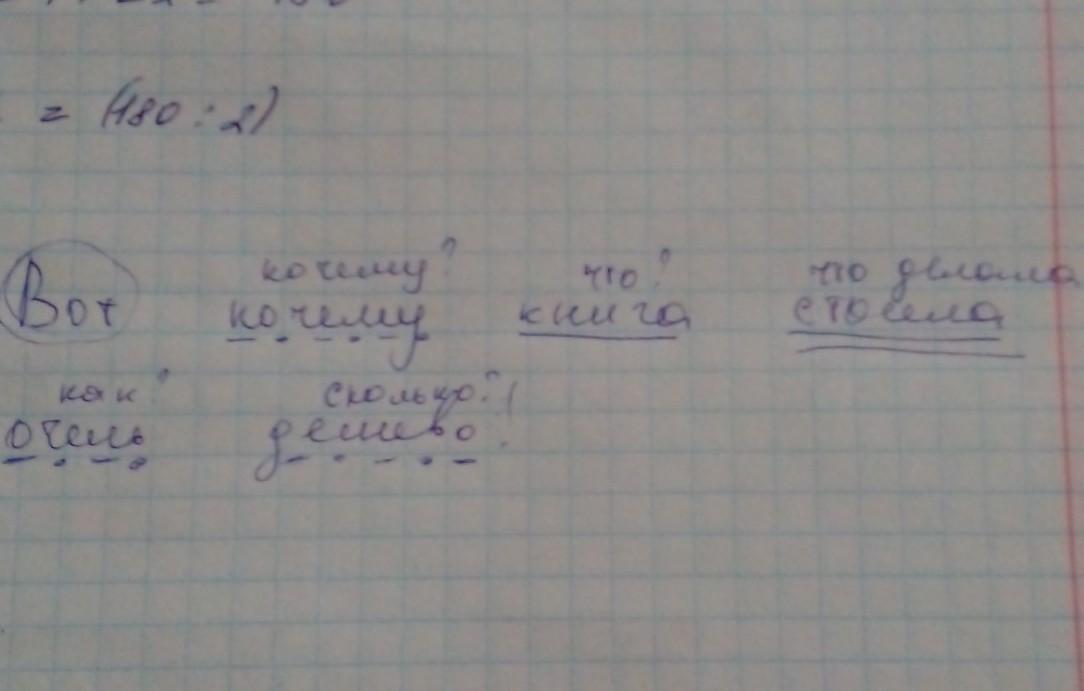 = (180 : 2)
почему? что? что делала
Вот почему книга стоила
как? сколько?
очень дешево.